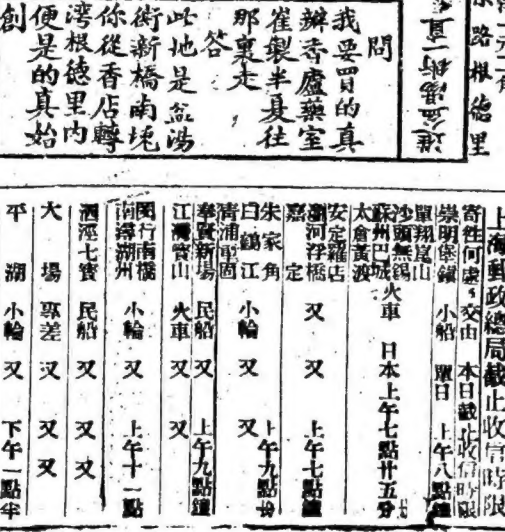 路根德里
問
我要買的真
辦香廬藥室
崔製半夏往
那裏走
答
此地是盆湯
街新橋南堍
你從香店轉
灣根德里內
便是的真始
創
上海郵政總局截止收信時限
寄往何處 交由 本日截止收信時限
崇明堡鎮 小船 單日 上午八點鐘
單翔崑山
沙頭無錫
蘇州巴城 火車 日本上午七點廿五分
太倉黃渡
安定羅店
瀏河浮橋 又 又 上午七點鐘
嘉定
朱家角
白鶴江 小輪 又 上午九點
青浦重固
奉賢新場 民船 又 上午九點鐘
江灣寶山 火車 又 又
閔行南橋
南潯湖州 小輪 又 上午十一點
泗涇七寶 民船 又 又
大場 專差 又 又 又
平湖 小輪 又 下午一點半